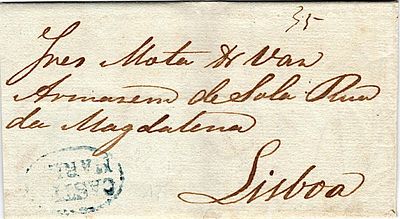 35
Snres Mota & Vaz
Armasem de Sola Rua
da Magdalena
Lisboa
CAST